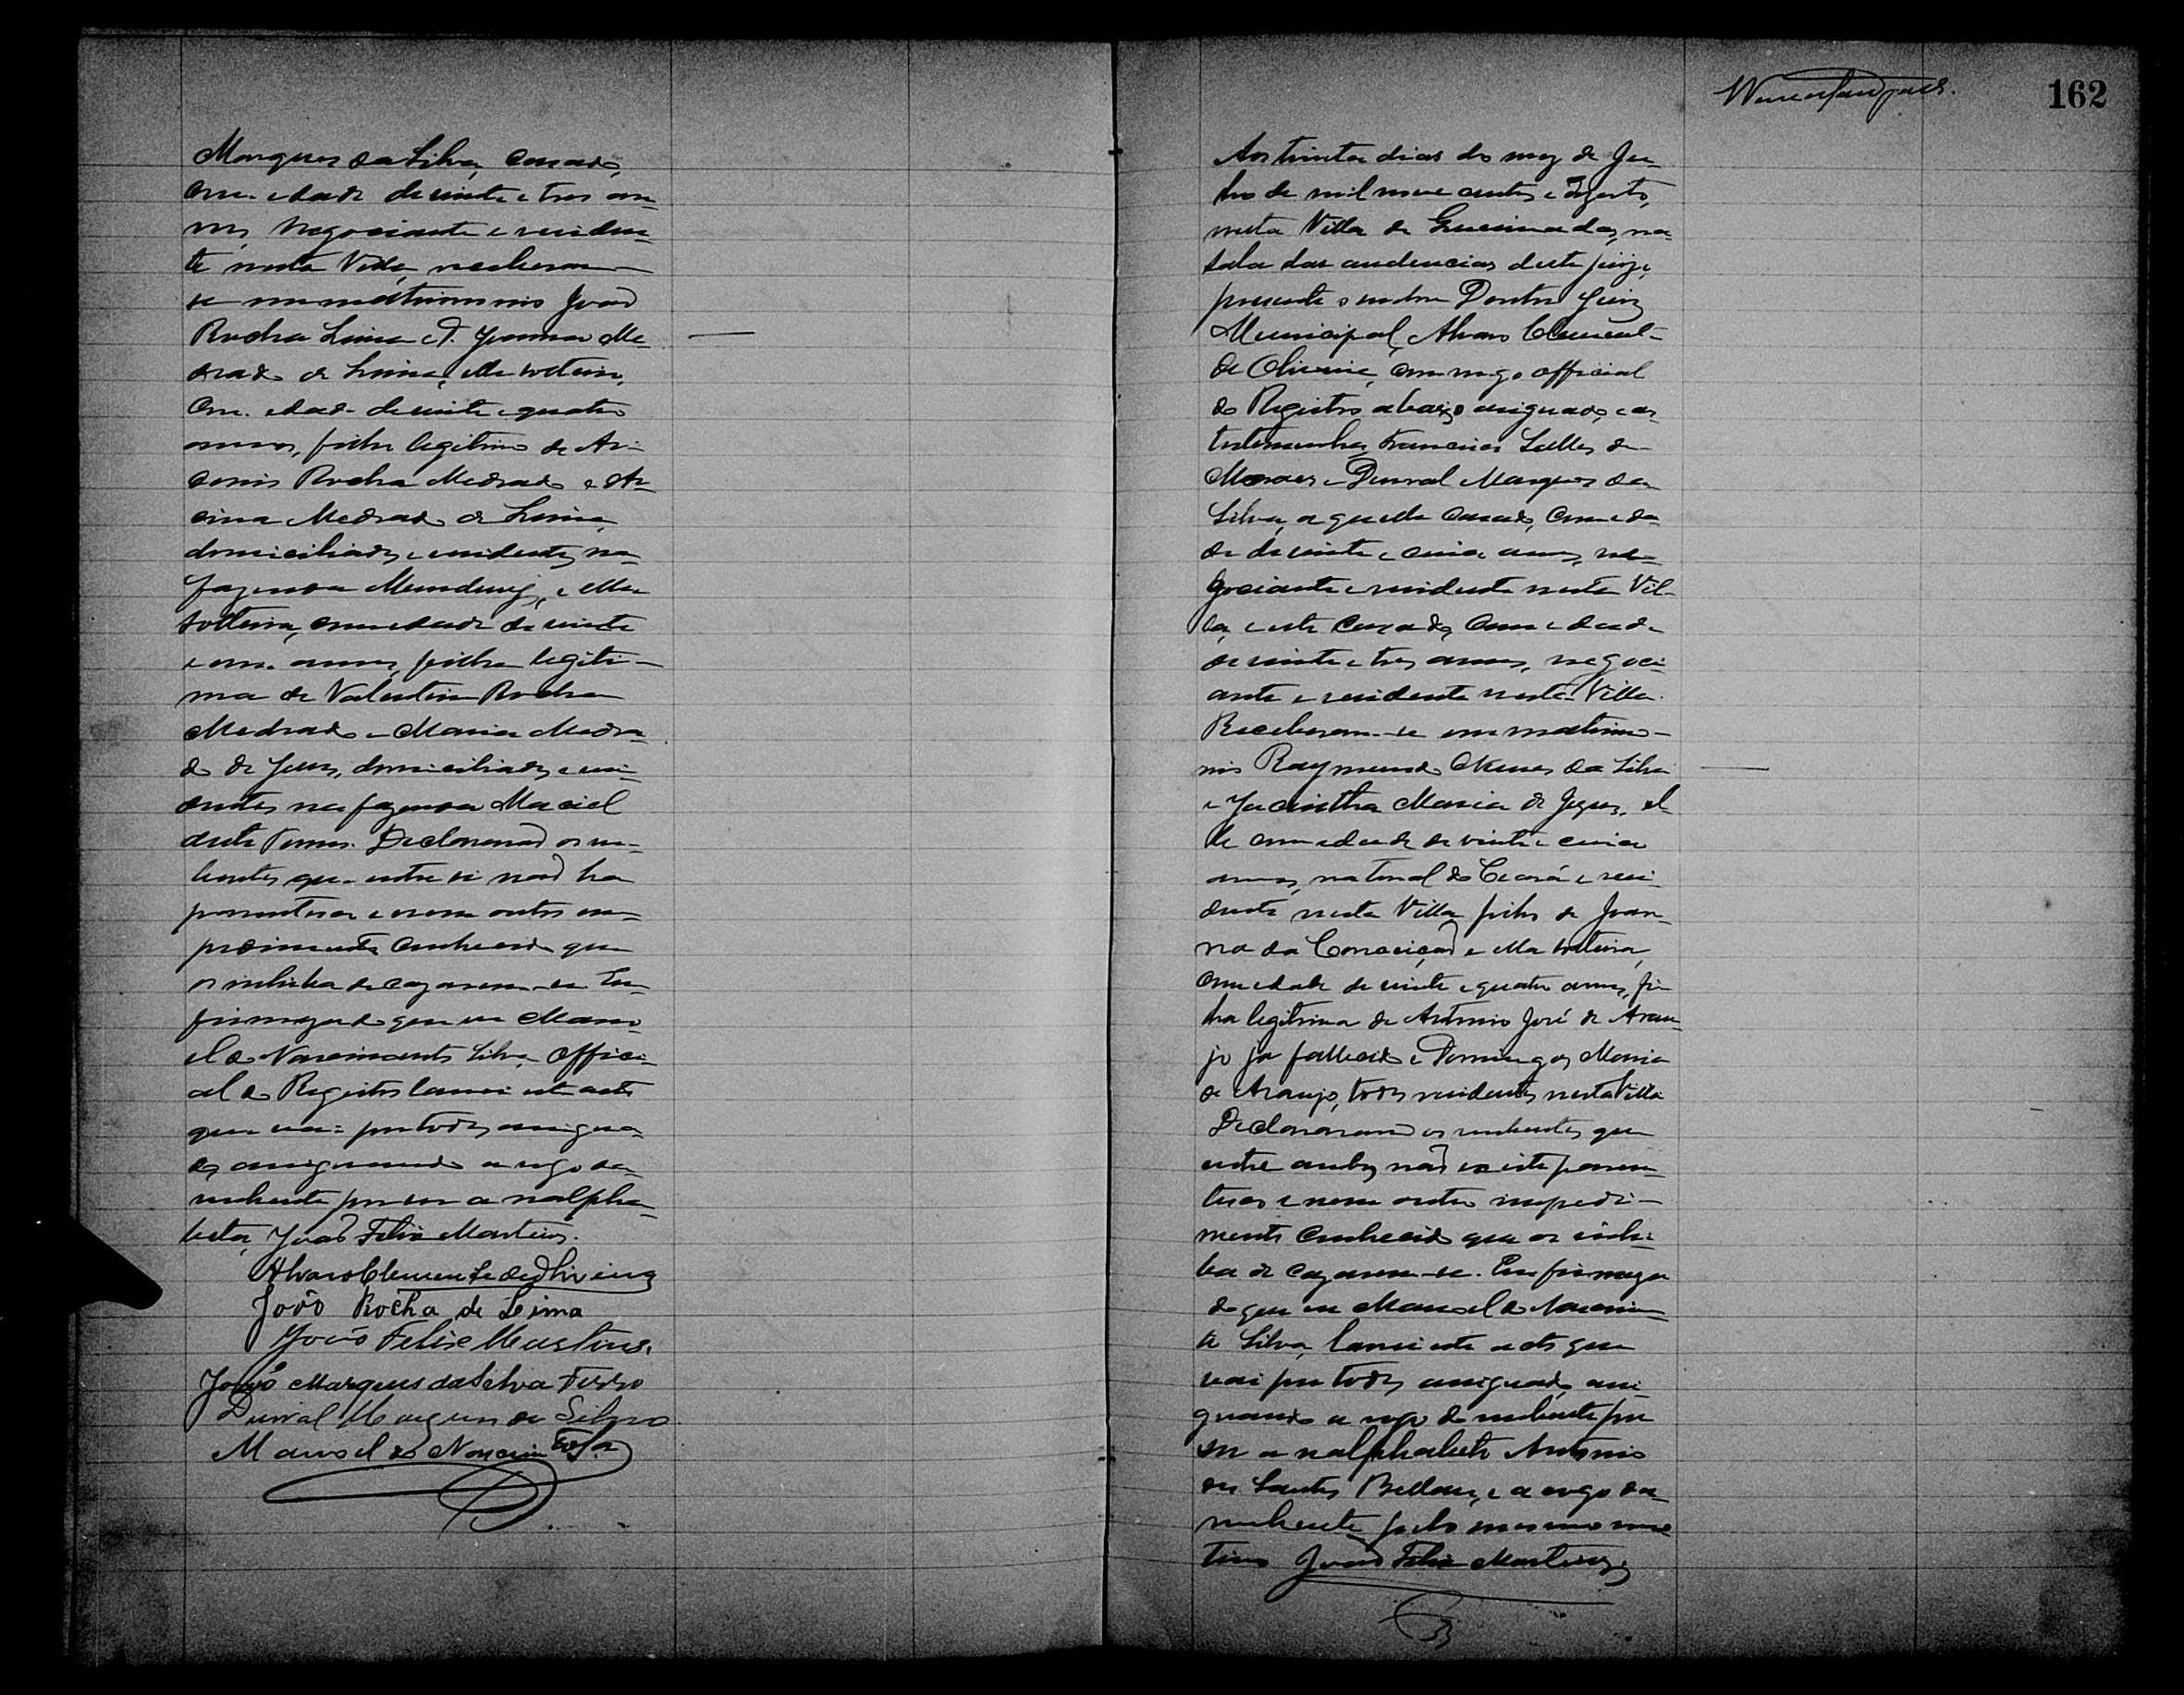 Marques da Silva, casado,
com edade de vinte e tres an-
nos, negociante e residen-
te nesta Villa, receberam-
se em matrimonio João
Rocha Lima e D. Joanna Me-
drado de Lima, elle solteiro,
com edade de vinte e quatro
annos, filho legitimo de
Rocha Medrado e
Medrado de Lima,
domiciliados e residentes na
fazenda e ella
solteira, com edade de vinte
e um annos, filha legiti-
ma de Valentim Rocha
Medrado e Maria Medra-
do de Jesus, domiciliados e resi-
dentes na fazenda Maciel
deste Termo. Declararaõ os nu-
bentes que entre si naõ ha
parentesco e nem outro im-
pedimento conhecido que
os inhiba de cazarem-se. Em
firmeza do que eu Mano-
el do Nascimento Silva, Offici-
al do Registro lavrei este acto
que vai por todos assigna-
do, assignando a rogo da
nubente por ser analpha-
beta, João Felix Martins.
Alvaro Clemente de Oliveira
João Rocha de Lima
João Felix Martins.
João Marques da Silva
Durval Marques da Silva
Manoel do Nascimto Sa
162
Aos trinta dias do mez de Ju-
lho de mil nove centos e dezoito,
nesta Villa de Queimadas, na
sala das audencias deste juizo,
presente o senhor Doutor Juiz
Municipal, Alvaro Clement-
de Oliveira, commigo official
do Registro abaixo assignado, e as
testemunhas, Francisco Salles de
Moraes e Durval Marques da
Silva, aquelle casado, com eda-
de de vinte e cinco annos, ne-
gociante e residente nesta Vil-
la, e este casado, com edade
de vinte e tres annos, negoci-
ante e residente nesta Villa.
Receberam-se em matrimo-
nio Raymundo Nunes da Silva
e Jacintha Maria de Jesus, el-
le com edade de vinte e cinco
annos, natural do Ceará e resi-
dente nesta Villa filho de Joan-
na da Conceiçaõ e ella solteira,
com edade de vinte e quatro annos, fi-
lha legitima de Antonio José de Arau-
jo ja fallecido e Domingas Maria
de Araujo, todos residentes nesta Villa
Declararam os nubentes que
entre ambos naõ existe paren-
tesco e nem outro impedi-
mento conhecido que os inhi-
ba de cazarem-se. Em firmeza
do que eu Manoel do Nascimen-
to Silva, lavrei este acto que
vai por todos assignado, assi-
gnando a rogo do nubente por
ser analphabeto Antonio
dos Santos e a rogo da
nubente pelo mesmo mo-
tivo João Felix Martins,